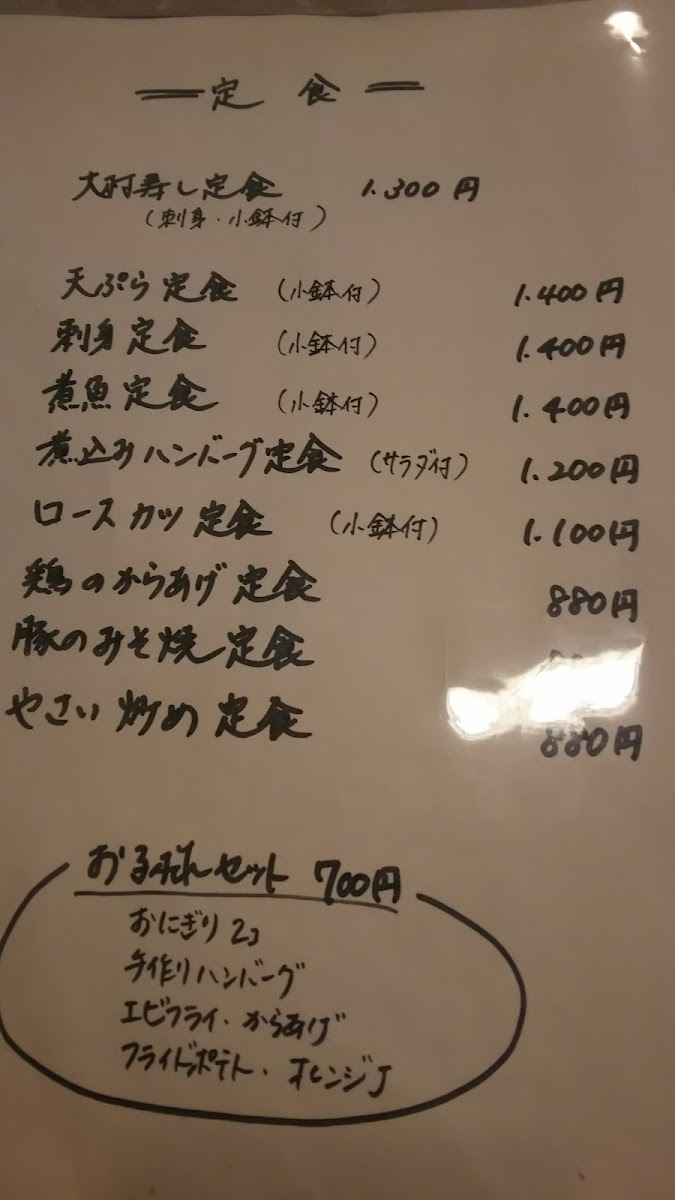 定 食
大村寿し定食 1.300円
(刺身・小鉢付)
天ぷら定食 (小鉢付) 1.400円
刺身定食 (小鉢付) 1.400円
煮魚定食 (小鉢付) 1.400円
煮込みハンバーグ定食 (サラダ付) 1.200円
ロースカツ定食 (小鉢付) 1.100円
鶏のからあげ定食 880円
豚のみそ焼定食
やさい炒め定食 880円
セット 700円
おにぎり2コ
手作りハンバーグ
エビフライ・からあげ
フライドポテト・オレンジJ